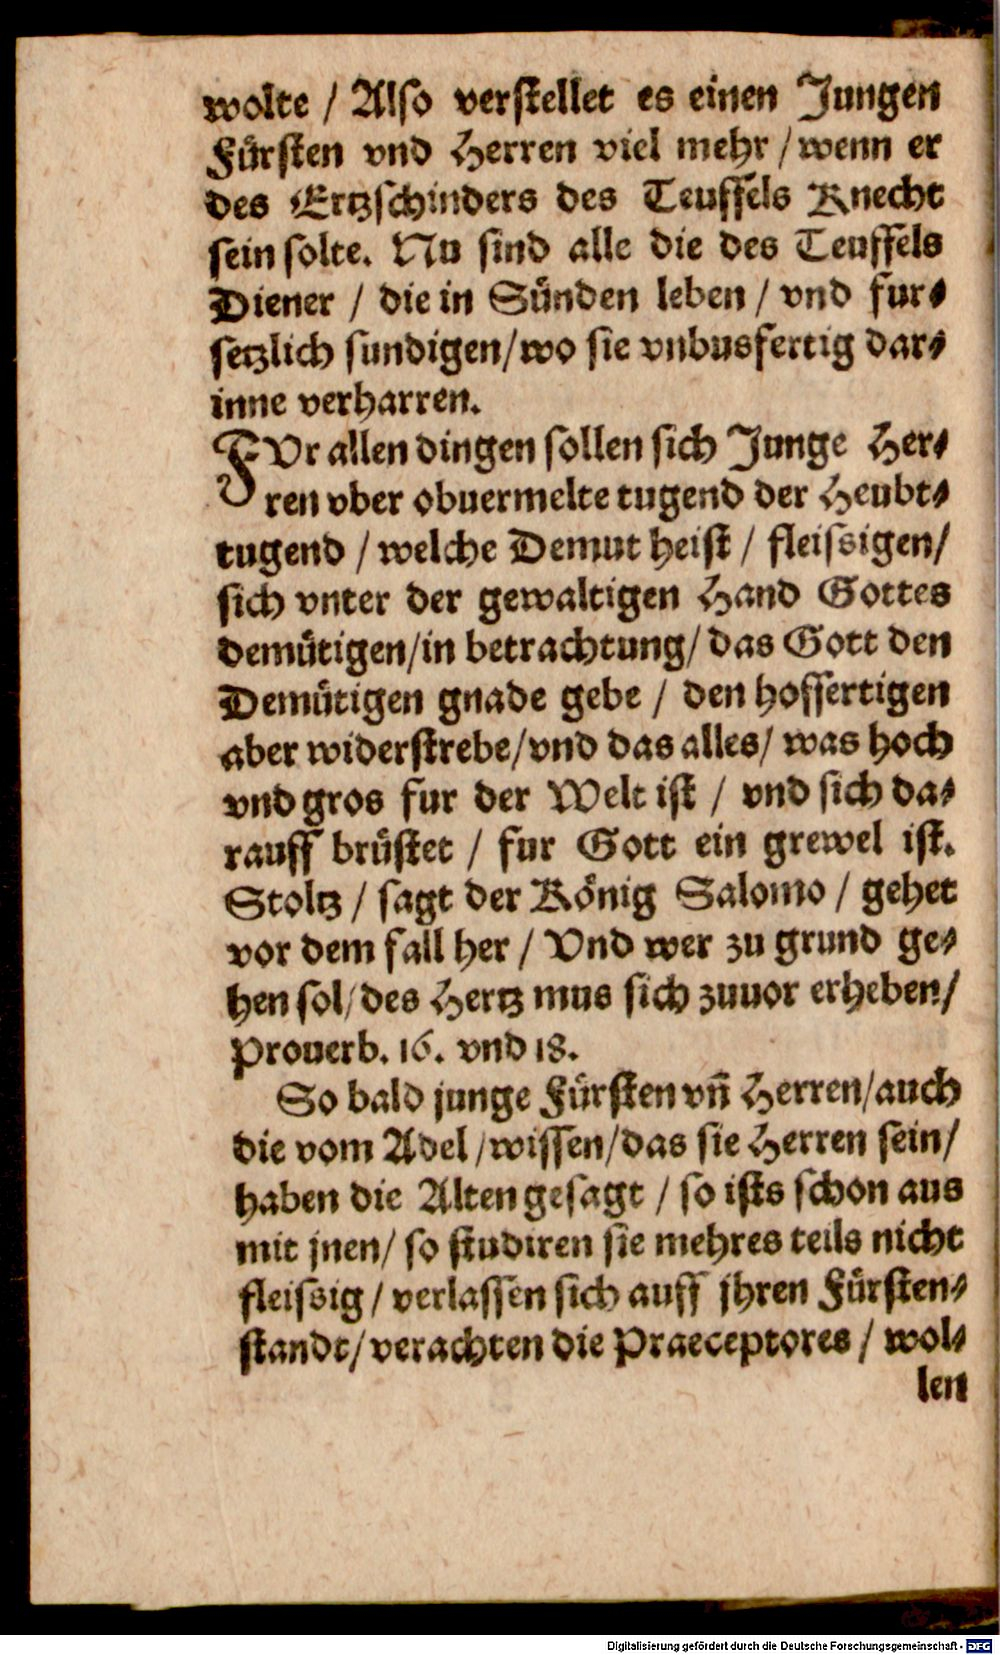 wolte / Also verstellet es einen Jungen
Fürsten vnd Herren viel mehr / wenn er
des Ertzschinders des Teuffels Knecht
sein solte. Nu sind alle die des Teuffels
Diener / die in Sünden leben / vnd fur⸗
setzlich sundigen/wo sie vnbusfertig dar⸗
inne verharren.
FVr allen dingen sollen sich Junge Her⸗
ren vber obuermelte tugend der Heubt⸗
tugend / welche Demut heist / fleissigen/
sich vnter der gewaltigen Hand Gottes
demütigen/in betrachtung/ das Gott den
Demütigen gnade gebe / den hoffertigen
aber widerstrebe/vnd das alles/ was hoch
vnd gros fur der Welt ist / vnd sich da⸗
rauff brüstet / fur Gott ein grewel ist.
Stoltz / sagt der König Salomo / gehet
vor dem fall her / Vnd wer zu grund ge⸗
hen sol/ des Hertz mus sich zuuor erheben/
Prouerb. 16. vnd 18.
So bald junge Fürsten vñ Herren/auch
die vom Adel /wissen/das sie Herren sein/
haben die Alten gesagt / so ists schon aus
mit jnen/ so studiren sie mehres teils nicht
fleissig / verlassen sich auff jhren Fürsten⸗
standt/ verachten die Praeceptores / wol⸗
len
Digitalisierung gefördert durch die Deutsche Forschungsgemeinschaft - DFG